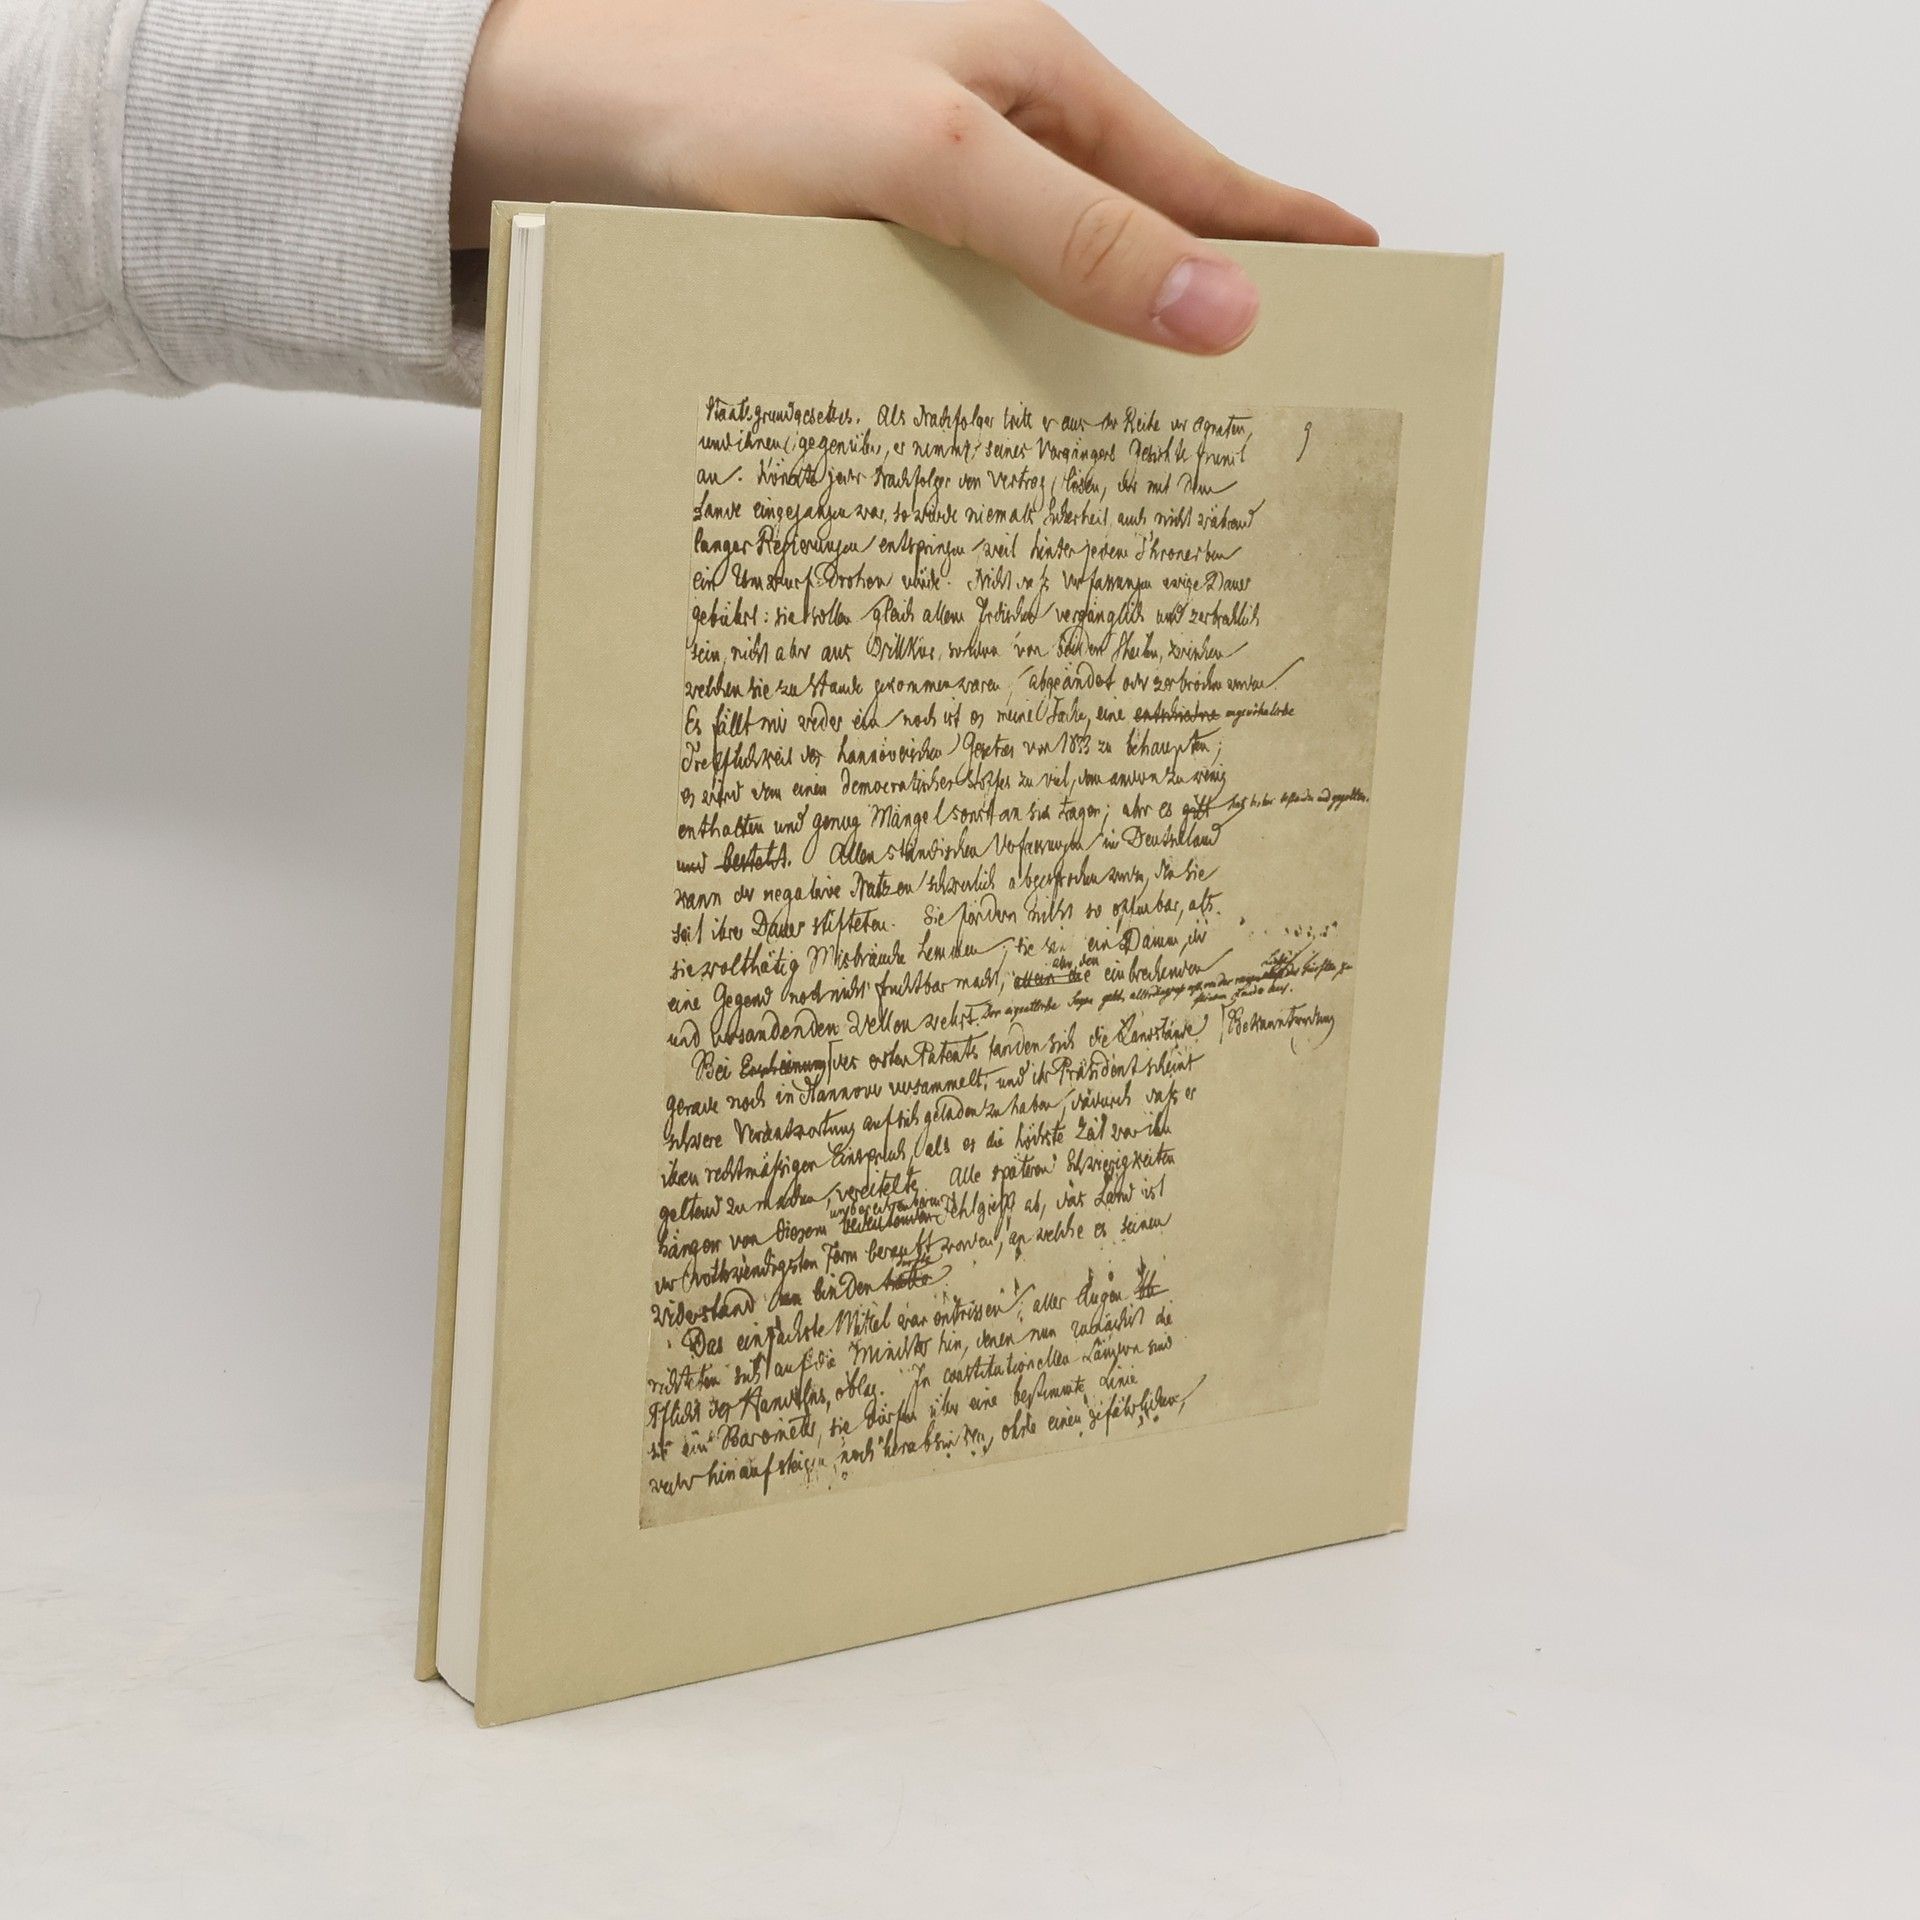 Staatsgrundgesetzes. Als Nachfolger tritt er aus der Reihe der Agnaten, 9
und ihnen gegenüber, er nimmt seines Vorgängers
an. Könnte jeder Nachfolger den Vertrag lösen, der mit dem
Lande eingegangen war, so würde niemals Sicherheit, auch nicht während
langer Regierungen entspringen weil hinter jedem Thronerben
ein Umsturz drohen würde. Nicht dass Verfassungen ewige Dauer
gebührt: sie sollen gleich allem Irdischen vergänglich und zerbrechlich
sein, nicht aber aus Willkür, sondern von beiden theilen, zwischen
welchen sie zu stande gekommen waren, abgeändert oder zerbrochen werden.
Es fällt mir weder ein noch ist es meine Sache, eine entschiedne
Treflichkeit des hannöverischen Gesetzes von 1833 zu behaupten;
es wird dem einen democratisches Stoffes zu viel, dem andern zu wenig
enthalten und genug Mängel sonst an sich tragen; aber es gilt hat bisher bestanden und gegolten.
und besteht. Allen ständischen Verfassungen in Deutschland
kann der negative Nutzen schwerlich abgesprochen werden, den sie
seit ihrer Dauer stifteten. Sie fördern nicht so offenbar, als
sie wolthätig Misbräuche hemmen; sie sind ein Damm, der
eine Gegend noch nicht fruchtbar macht, allein die aber den einbrechenden
und versandenden Wellen wehrt.
Bei Erscheinung des ersten Patents fanden sich die Landstände Bekanntwerdung
gerade noch in Hannover versammelt, und ihr Präsident scheint
schwere Verantwortung auf sich geladen zu haben, dadurch dass er
ihren rechtmässigen Einspruch, als es die höchste Zeit war ihn
geltend zu machen, vereitelte. Alle späteren Schwierigkeiten
hängen von diesem Fehlgrif ab, das Land ist
der nothwendigsten Form beraubt worden, an welche es seinen
Widerstand binden hätte
Das einfachste Mittel war entrissen; aller Augen
richteten sich auf die Minister hin, denen nun zunächst die
Pflicht des Handelns oblag. In constitutionellen Ländern sind
sie ein Barometer, sie dürfen über eine bestimmte Linie
weder hinaufsteigen, noch herabsinken, ohne einen gefährlichen,